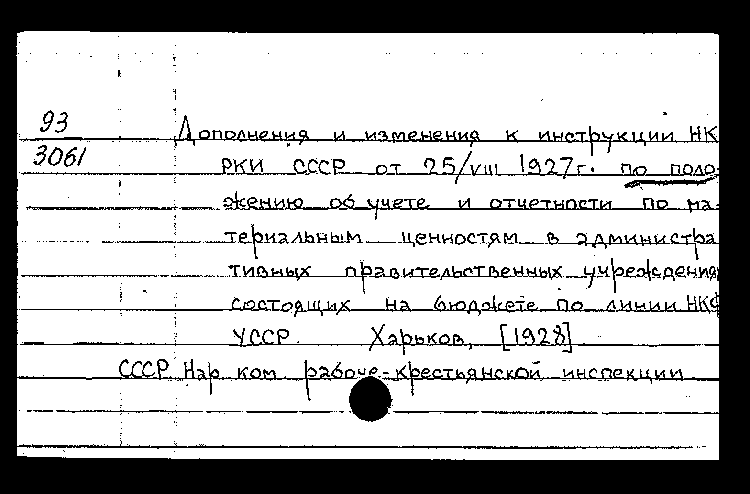 93
3061
Дополнения и изменения к инструкции НК
РКИ СССР от 25/VIII 1927г. по поло
жению об учете и отчетности по ма-
териальным ценностям в администра
тивных правительственных учреждения
состоящих на бюджете по линии НКФ
УССР. Харьков, [1928]
СССР Нар ком рабоче-крестьянской инспекции